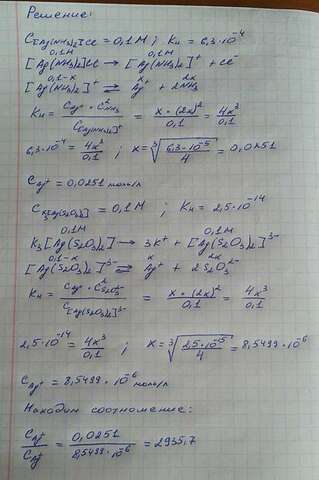 Решение:
C[Ag(NH₃)₂]Cl = 0,1M ; Kн = 6,3·10⁻⁴
0,1M 0,1M
[Ag(NH₃)₂]Cl → [Ag(NH₃)₂]⁺ + Cl⁻
0,1-x x 2x
[Ag(NH₃)₂]⁺ ⇄ Ag⁺ + 2NH₃
Kн = CAg⁺ · C²NH₃ / C[Ag(NH₃)₂]⁺ = x · (2x)² / 0,1 = 4x³ / 0,1
6,3·10⁻⁴ = 4x³ / 0,1 ; x = ³√(6,3·10⁻⁵ / 4) = 0,0251
CAg⁺ = 0,0251 моль/л
CK₃[Ag(S₂O₃)₂] = 0,1M ; Kн = 2,5·10⁻¹⁴
0,1M 0,1M
K₃[Ag(S₂O₃)₂] → 3K⁺ + [Ag(S₂O₃)₂]³⁻
0,1-x x 2x
[Ag(S₂O₃)₂]³⁻ ⇄ Ag⁺ + 2S₂O₃²⁻
Kн = CAg⁺ · C²S₂O₃²⁻ / C[Ag(S₂O₃)₂]³⁻ = x · (2x)² / 0,1 = 4x³ / 0,1
2,5·10⁻¹⁴ = 4x³ / 0,1 ; x = ³√(2,5·10⁻¹⁵ / 4) = 8,5499·10⁻⁶
CAg⁺ = 8,5499·10⁻⁶ моль/л
Находим соотношение:
CAg⁺ / CAg⁺ = 0,0251 / 8,5499·10⁻⁶ = 2935,7